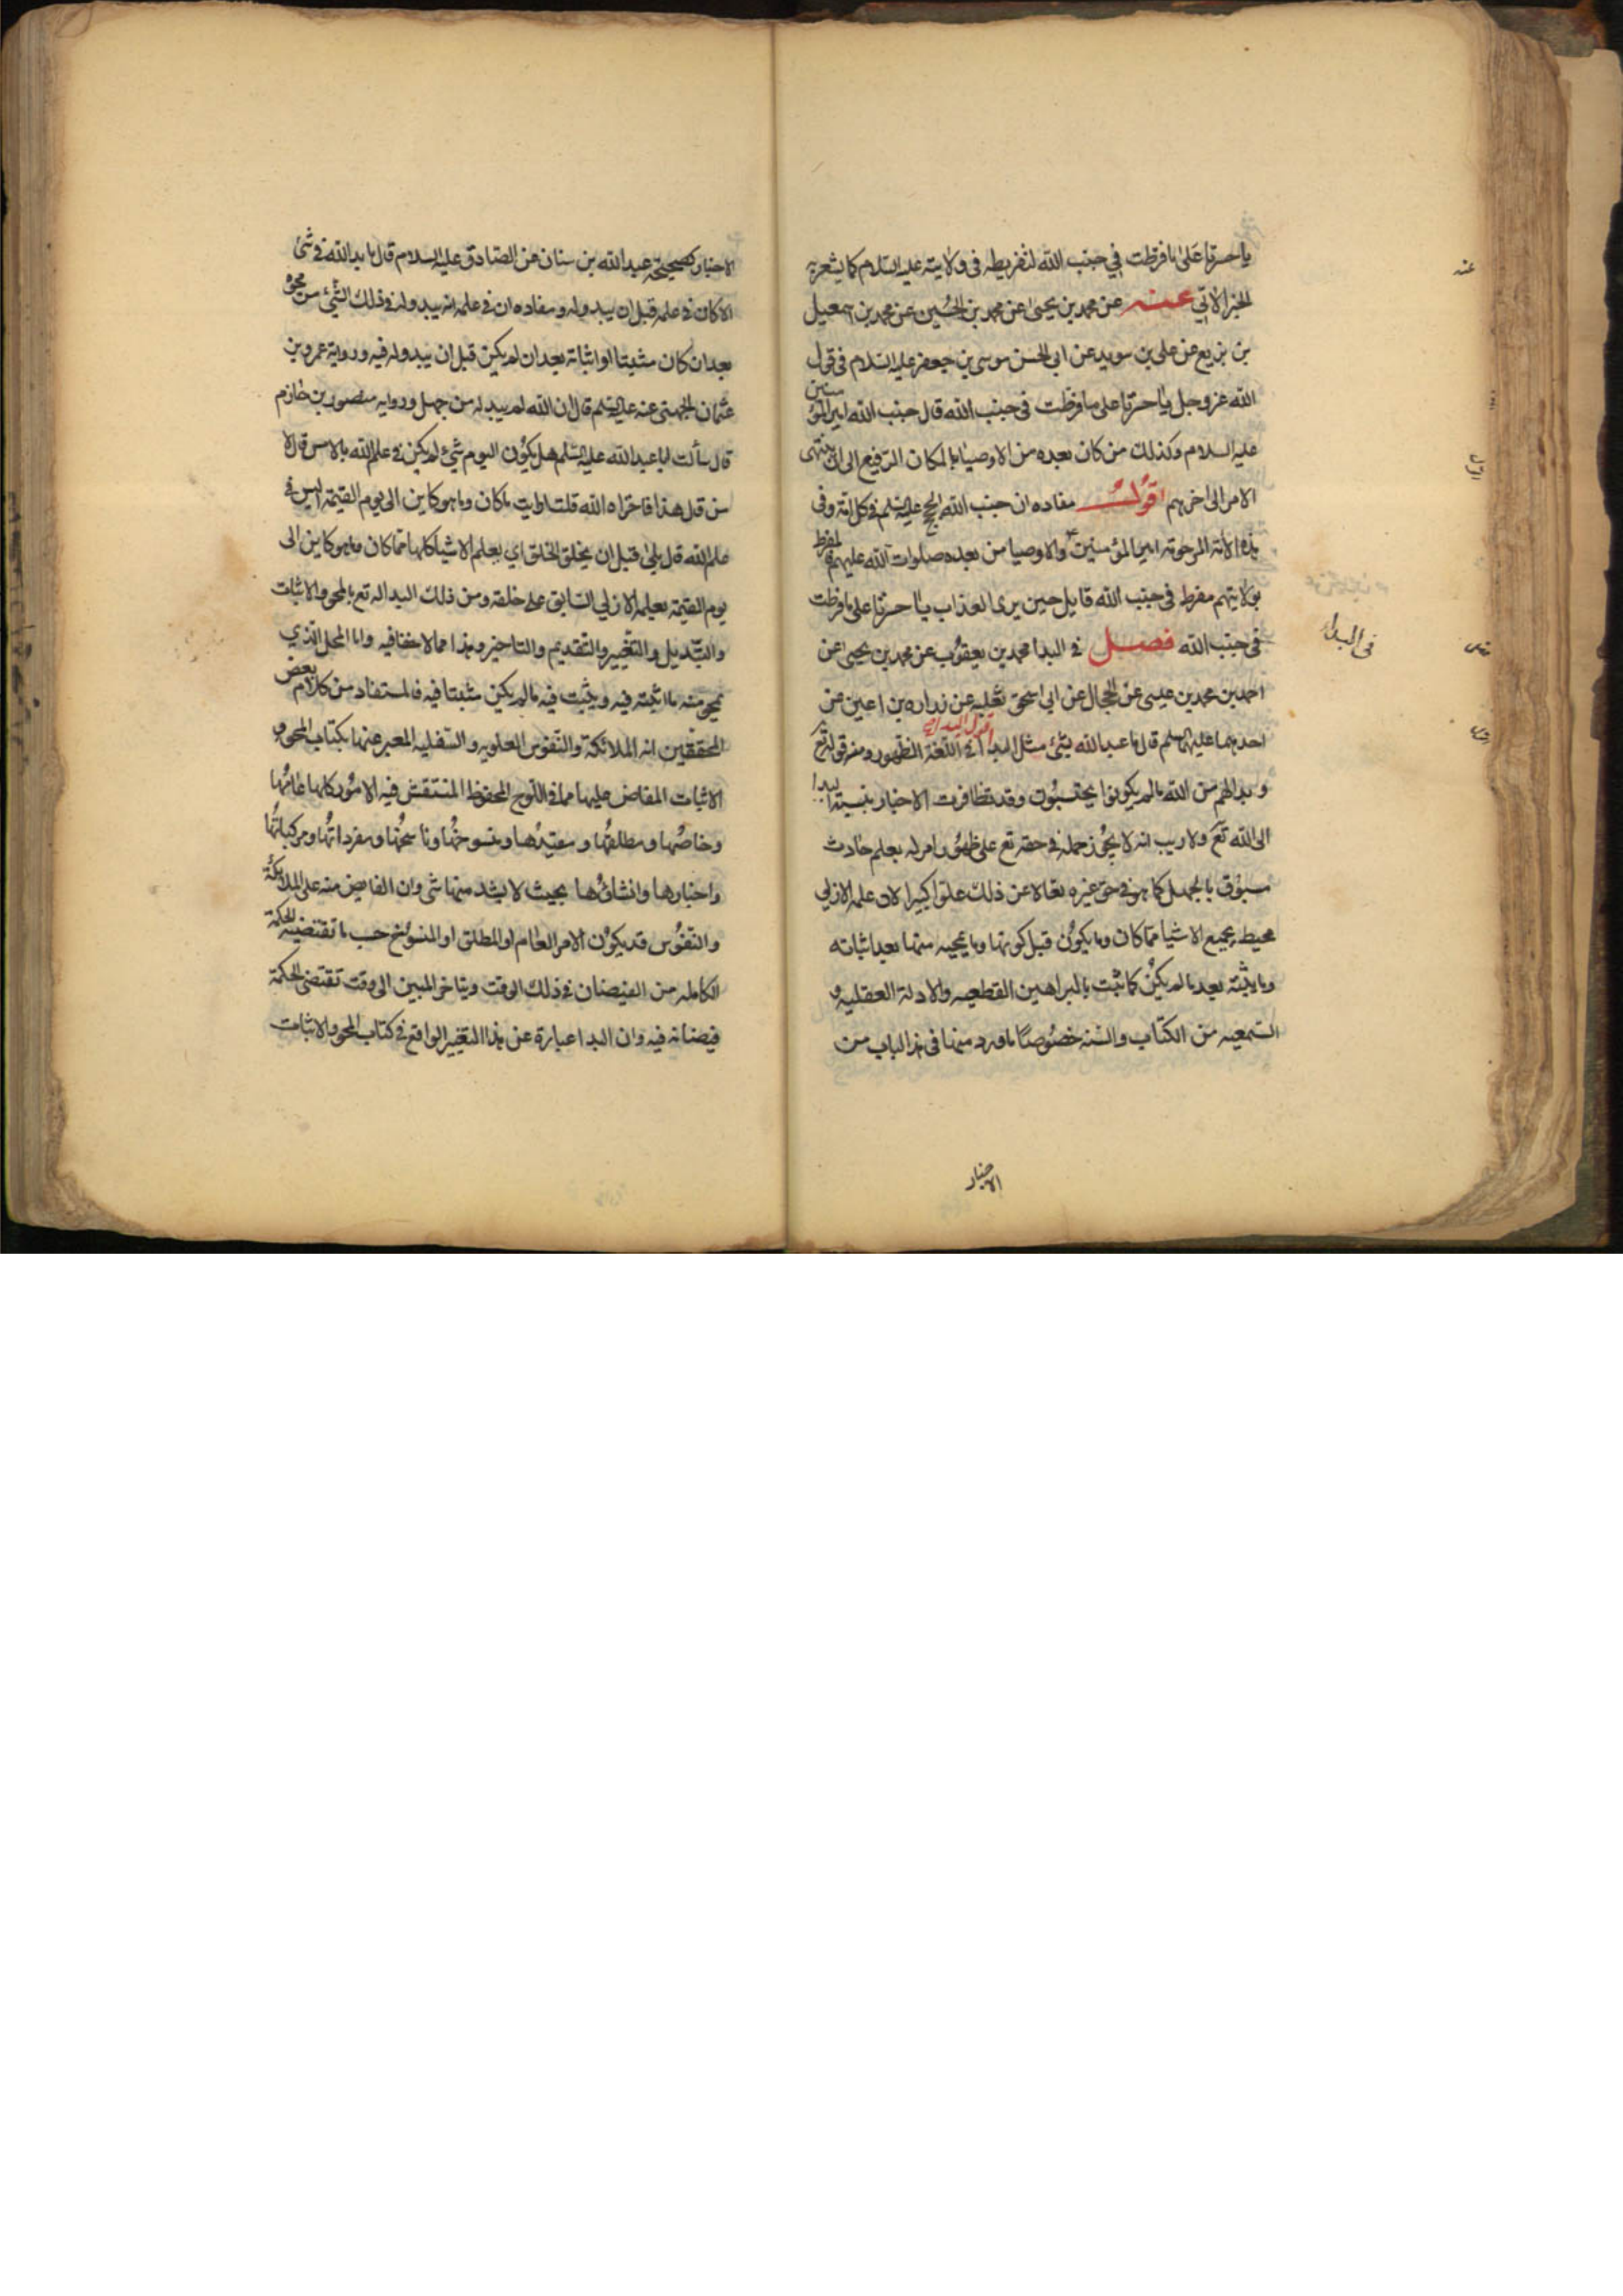 يا حسرتا على ما فرطت في جنب الله لتفريطه فى ولايته عليه السلام كما يشعر به
الخبر الاتي عنه عن محمد بن يحيى عن محمد بن الحسين عن محمد بن اسمعيل
بن بزيع عن على بن سويد عن ابى الحسن موسى بن جعفر عليه السلام فى قول
الله عز وجل يا حسرتا على ما فرطت فى جنب الله قال جنب الله امير المؤمنين
عليه السلام وكذلك من كان بعده من الاوصيا بالمكان الرفيع الى ان ينتهى
الامر الى اخرهم اقول مفاده ان جنب الله الحجج عليهم السلم فى كل امة وفى
هذه الامة المرحومة امير المؤمنين والاوصيا من بعده صلوات الله عليهم فالمفرط
بولايتهم مفرط فى جنب الله قايل حين يرى العذاب يا حسرتا على ما فرطت
فى جنب الله فصل فى البدا محمد بن يعقوب عن محمد بن يحيى عن
احمد بن محمد بن عيسى عن الحجال عن ابى اسحق ثعلبه عن زراره بن اعين عن
احدهما عليهما السلم قال ما عبد الله بشئ مثل البدا اقول البداء فى اللغة الظهور ومنه قوله تع
وبدا لهم من الله ما لم يكونوا يحتسبون وقد تظافرت الاخبار بنسبة البدا
الى الله تع ولا ريب انه لا يجوز حمله فى حقه تع على ظهور امر له بعلم حادث
مسبوق بالجهل كما هو فى حق غيره تعالا عن ذلك علوا كبيرا لان علمه الازلي
محيط بجميع الاشيا مما كان وما يكون قبل كونها وما يمحيه منها بعد اثباته
وما يثبته بعد ما لم يكن كما ثبت بالبراهين القطعيه والادلة العقليه و
السمعيه من الكتاب والسنه خصوصا ما ورد منها فى هذا الباب من
الاخبار
عنه
فى البداء
الاخبار كصحيحة عبد الله بن سنان عن الصادق عليه السلام قال ما بدا لله فى شئ
الا كان فى علمه قبل ان يبدو له ومفاده ان فى علمه انه يبدو له فى ذلك الشئ من محوه
بعد ان كان مثبتا او اثباته بعد ان لم يكن قبل ان يبدو له فيه ورواية عمرو بن
عثمان الجهنى عنه عليه السلم قال ان الله لم يبد له من جهل ورواية منصور بن حازم
قال سألت ابا عبد الله عليه السلم هل يكون اليوم شئ لم يكن فى علم الله بالامس قال لا
من قال هذا فاخزاه الله قلت ارايت ما كان وما هو كاين الى يوم القيمة اليس فى
علم الله قال بلى قبل ان يخلق الخلق اي بعلم الاشيا كلها مما كان وما هو كاين الى
يوم القيمة بعلمه الازلي السابق على خلقه ومن ذلك البدا له تع بالمحو والاثبات
والتبديل والتغيير والتقديم والتاخير وهذا مما لا خفا فيه واما المحل الذي
يمحو منه ما اثبته فيه ويثبت فيه ما لم يكن مثبتا فيه فالمستفاد من كلام بعض
المحققين انه الملائكة والنفوس العلويه والسفليه المعبر عنها بكتاب المحو و
الاثبات المفاض عليها مما فى اللوح المحفوظ المنتقش فيه الامور كلها عامها
وخاصها ومطلقها ومقيدها ومنسوخها وناسخها ومفرداتها ومركباتها
واخبارها وانشاؤها بحيث لا يشذ منها شى وان الفايض منه على الملائكة
والنفوس قد يكون الامر العام او المطلق او المنسوخ حسب ما تقتضيه الحكمة
الكامله من الفيضان فى ذلك الوقت ويتاخر المبين الى وقت تقتضى الحكمة
فيضانه فيه وان البدا عبارة عن هذا التغيير الواقع فى كتاب المحو والاثبات